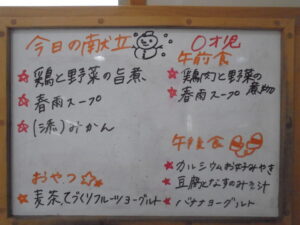 今日の献立
☆鶏と野菜の旨煮
☆春雨スープ
☆(添)みかん
おやつ
麦茶、てづくりフルーツヨーグルト
〇才児
午前食
☆鶏肉と野菜の煮物
☆春雨スープ
午後食
★カルシウムお好みやき
★豆腐となすのみそ汁
★バナナヨーグルト